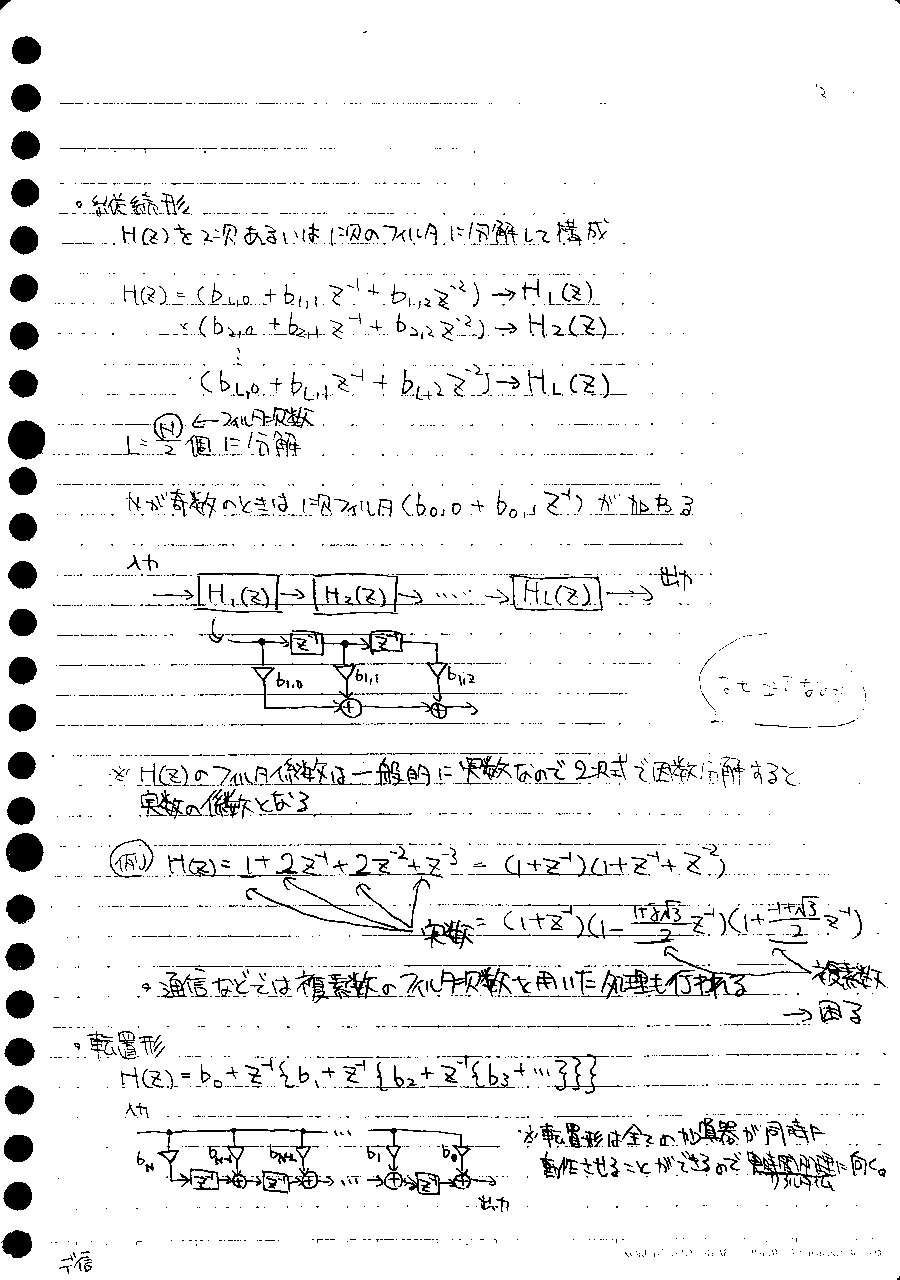 。縦続形
H(z)を2次あるいは1次のフィルタに分解して構成
H(z)=(b1,0+b1,1 z⁻¹+b1,2 z⁻²)→H1(z)
×(b2,0+b2,1 z⁻¹+b2,2 z⁻²)→H2(z)
⋮
(bL,0+bL,1 z⁻¹+bL,2 z⁻²)→HL(z)
←フィルタ次数
L=N/2 個に分解
Nが奇数のときは1次フィルタ(b0,0+b0,1 z⁻¹)が加わる
入力
→H1(z)→H2(z)→……→HL(z)→ 出力
z⁻¹ z⁻¹
b1,0 b1,1 b1,2
+ +
※H(z)のフィルタ係数は一般的に実数なので2次式で因数分解すると
実数の係数となる
例 H(z)=1+2z⁻¹+2z⁻²+z⁻³=(1+z⁻¹)(1+z⁻¹+z⁻²)
実数 =(1+z⁻¹)(1-(1+j√3)/2 z⁻¹)(1+(-1+√3)/2 z⁻¹)
複素数
。通信などでは複素数のフィルタ次数を用いた処理も行われる
→困る
。転置形
H(z)=b0+z⁻¹{b1+z⁻¹{b2+z⁻¹{b3+…}}}
入力
…
bN bN-1 bN-2 b1 b0
z⁻¹ + z⁻¹ + … + z⁻¹ +
出力
※転置形は全ての加算器が同時に
動作させることができるので実時間処理に向く。
リアルタイム
デ信